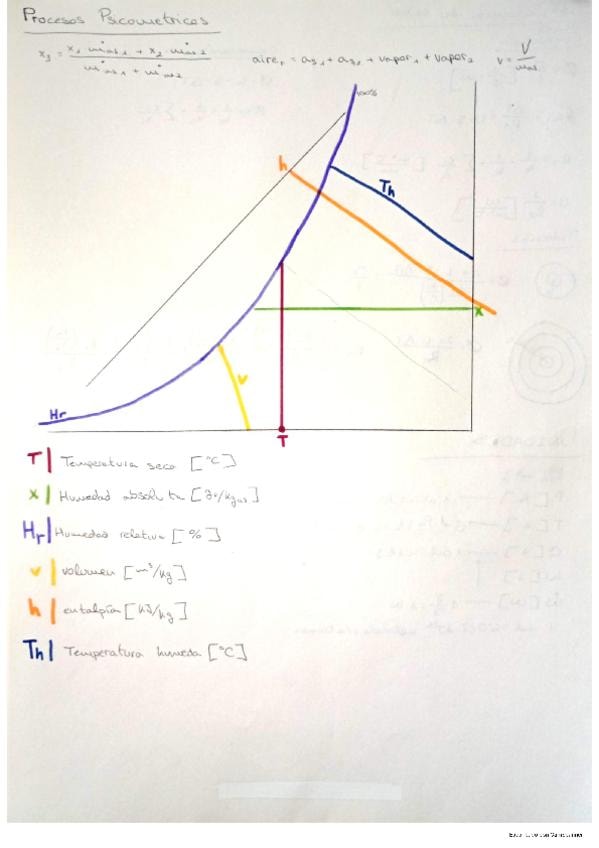 Procesos Psicometricos
x₃ = x₁ · ṁas₁ + x₂ · ṁas₂ / ṁas₁ + ṁas₂
aire₁ = as₁ + as₂ + vapor₁ + vapor₂
v = V / mas
100%
h
Th
x
v
Hr
T
T | Temperatura seca [°C]
x | Humedad absoluta [gv/kgas]
Hr | Humedad relativa [%]
v | volumen [m³/kg]
h | entalpía [kJ/kg]
Th | Temperatura humeda [°C]